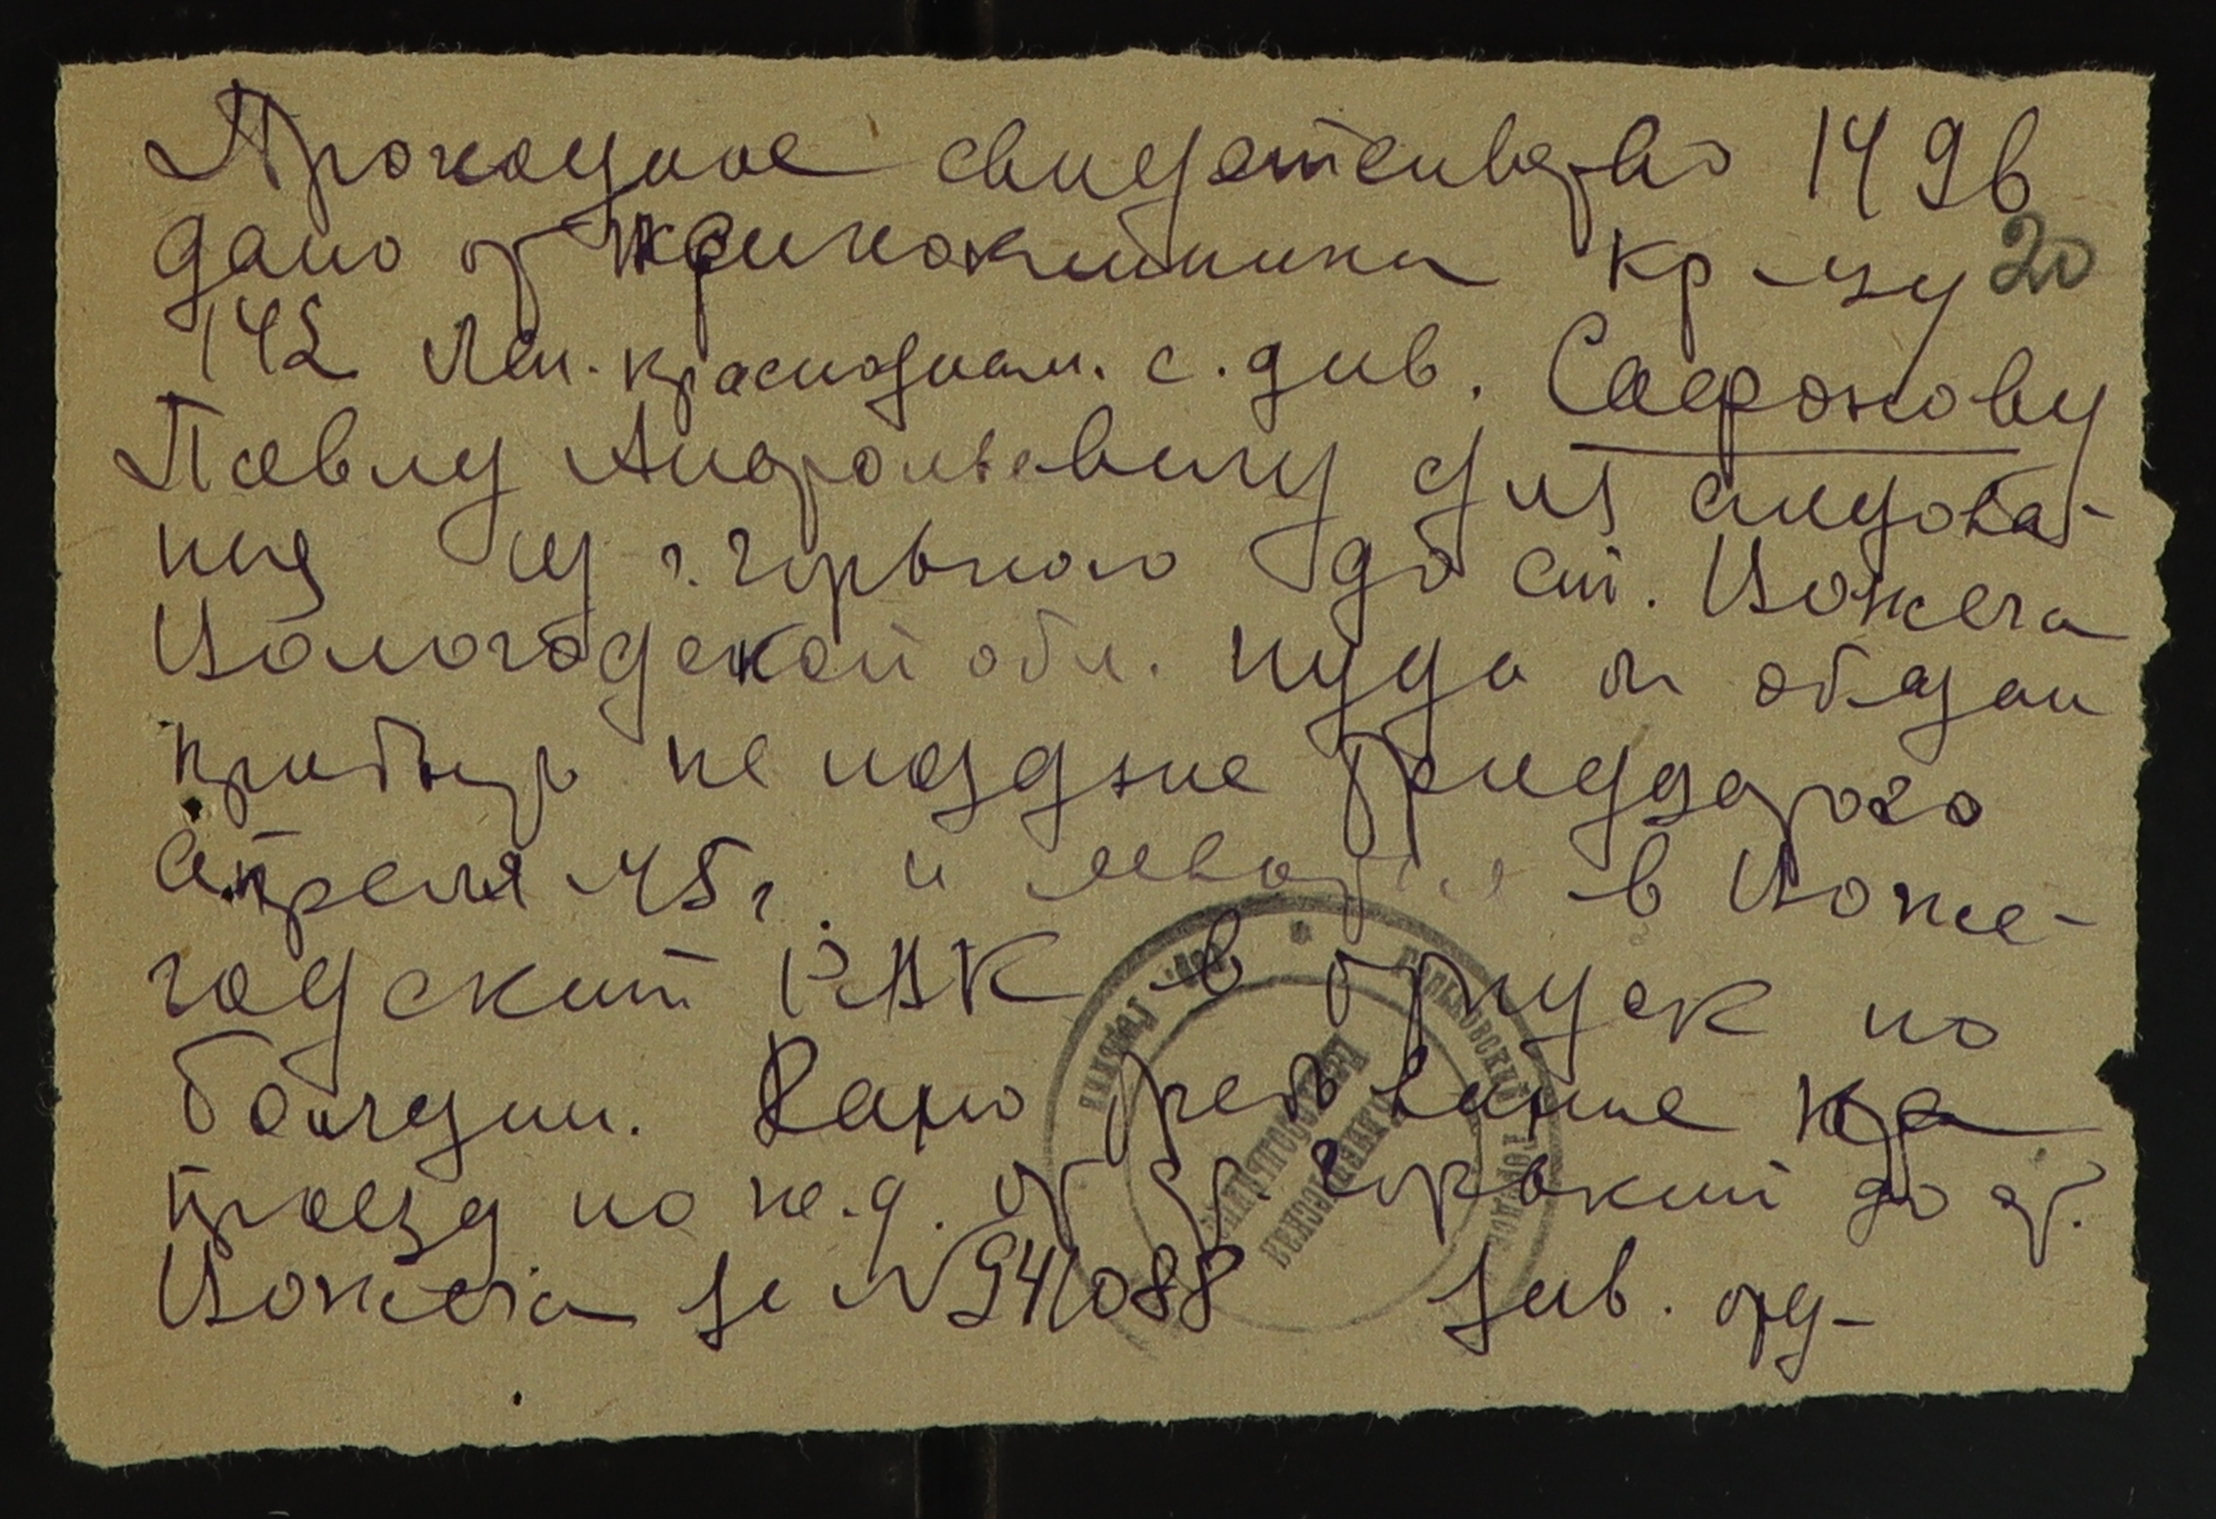 Проходное свидетельство 1496
дано от кр-цу
20
142 Лен. краснознам. с. див. Сафонову
Павлу Андроньевичу для следова-
ния из г. Горького до ст. Вожега
Вологодской обл. куда он обязан
прибыть не позднее тридцатого
апреля 45 г. и явиться в Воже-
годский РВК в отпуск по
болезни. Дано требование на
проезд по ж.д. от ст. Горький до ст.
Вожега за № 941088 Зав. отд-
ГОРЬКОВСКИЙ ГОРОДСК